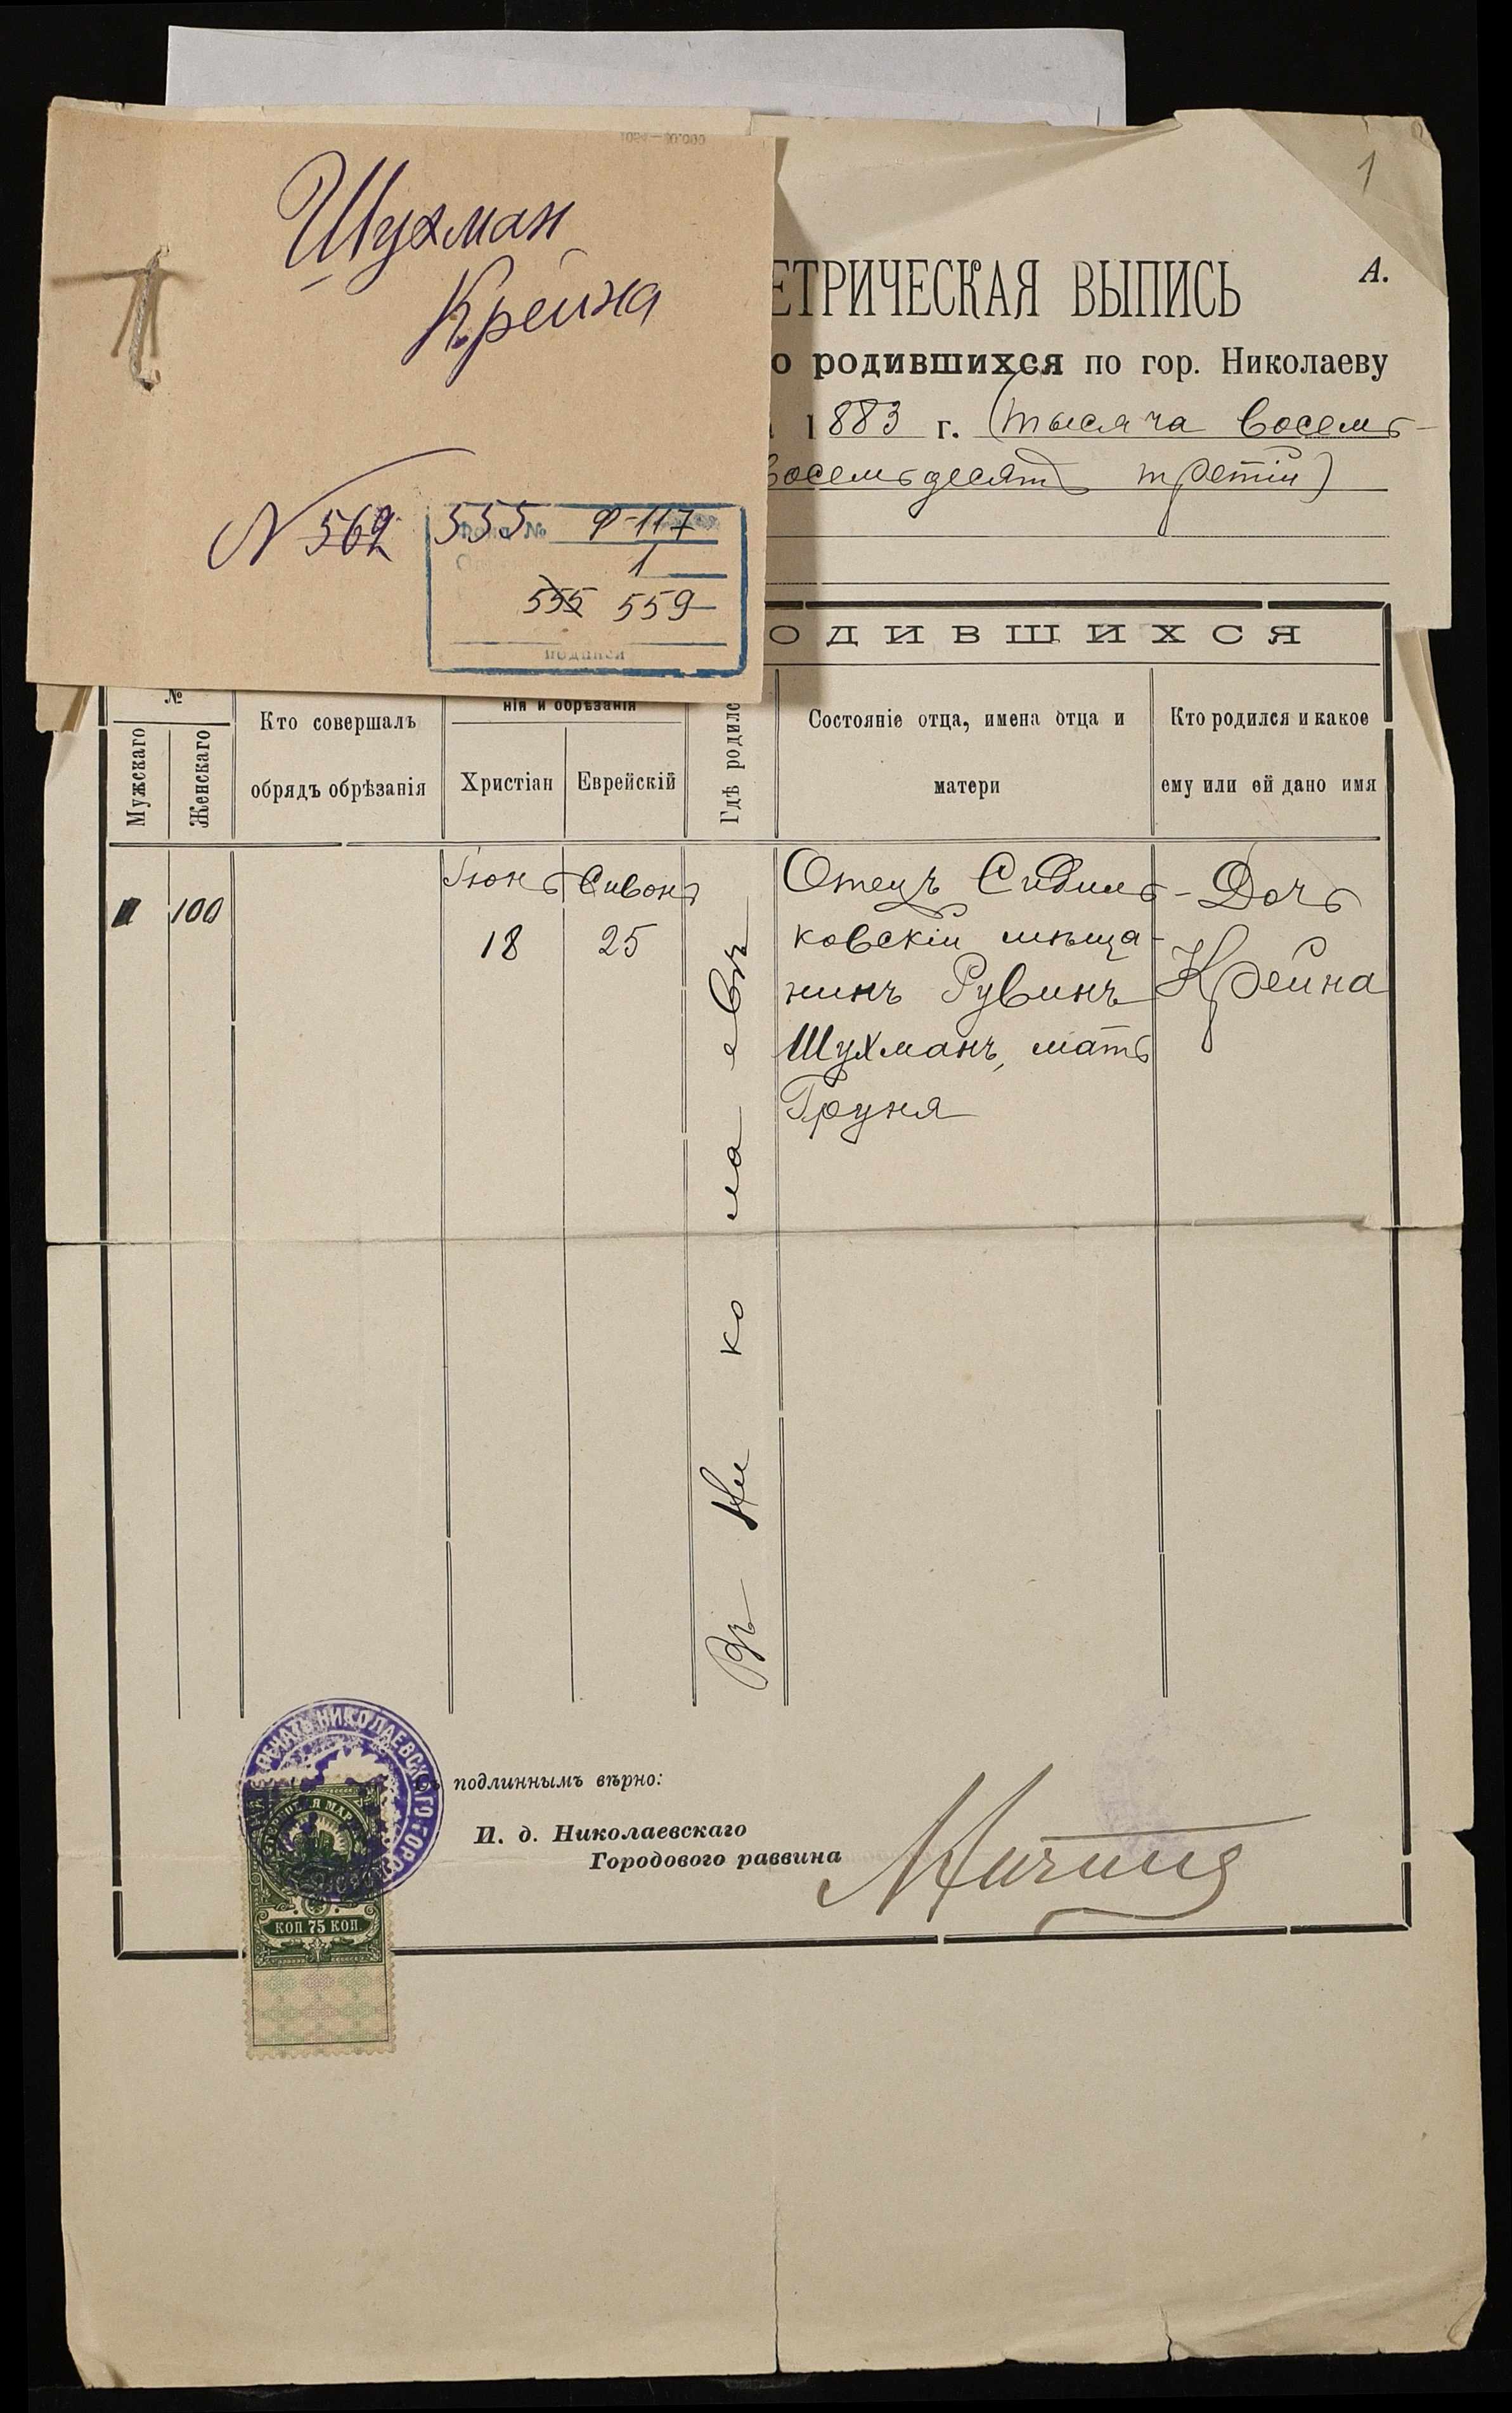 Шухман
Крейна
N 562 555 Ф-117
1
555 559
подписи
1
ЕТРИЧЕСКАЯ ВЫПИСЬ
А.
о родившихся по гор. Николаеву
1883 г. (тысяча восемь-
восемьдесятъ третій)
ОДИВШИХСЯ
№
Мужскаго
Женскаго
Кто совершалъ
обрядъ обрѣзанія
нія и обрѣзанія
Христіан
Еврейскій
Гдѣ родилс
Состояніе отца, имена отца и
матери
Кто родился и какое
ему или ей дано имя
100
Іюнь
18
Сивонъ
25
Въ Николаевѣ
Отецъ
ковскій мѣща-
нинъ Рувинъ
Шухманъ, мать
Груня
Дочь
Крейна
ПЕЧАТЬ НИКОЛАЕВСКАГО ГОРОД
КОП. 75 КОП.
Съ подлиннымъ вѣрно:
И. д. Николаевскаго
Городового раввина